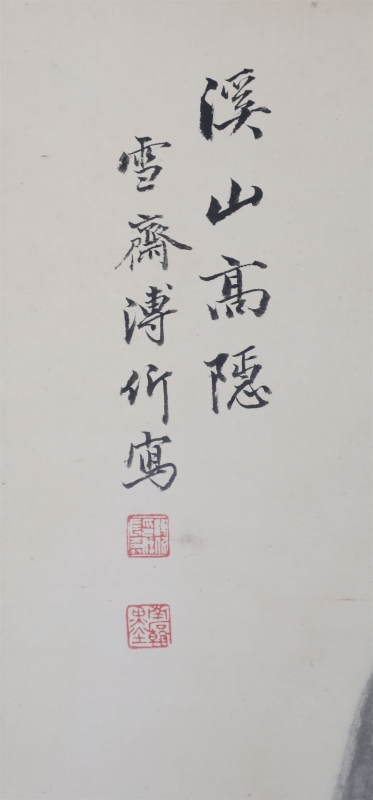 溪山高隱
雪齋溥伒寫